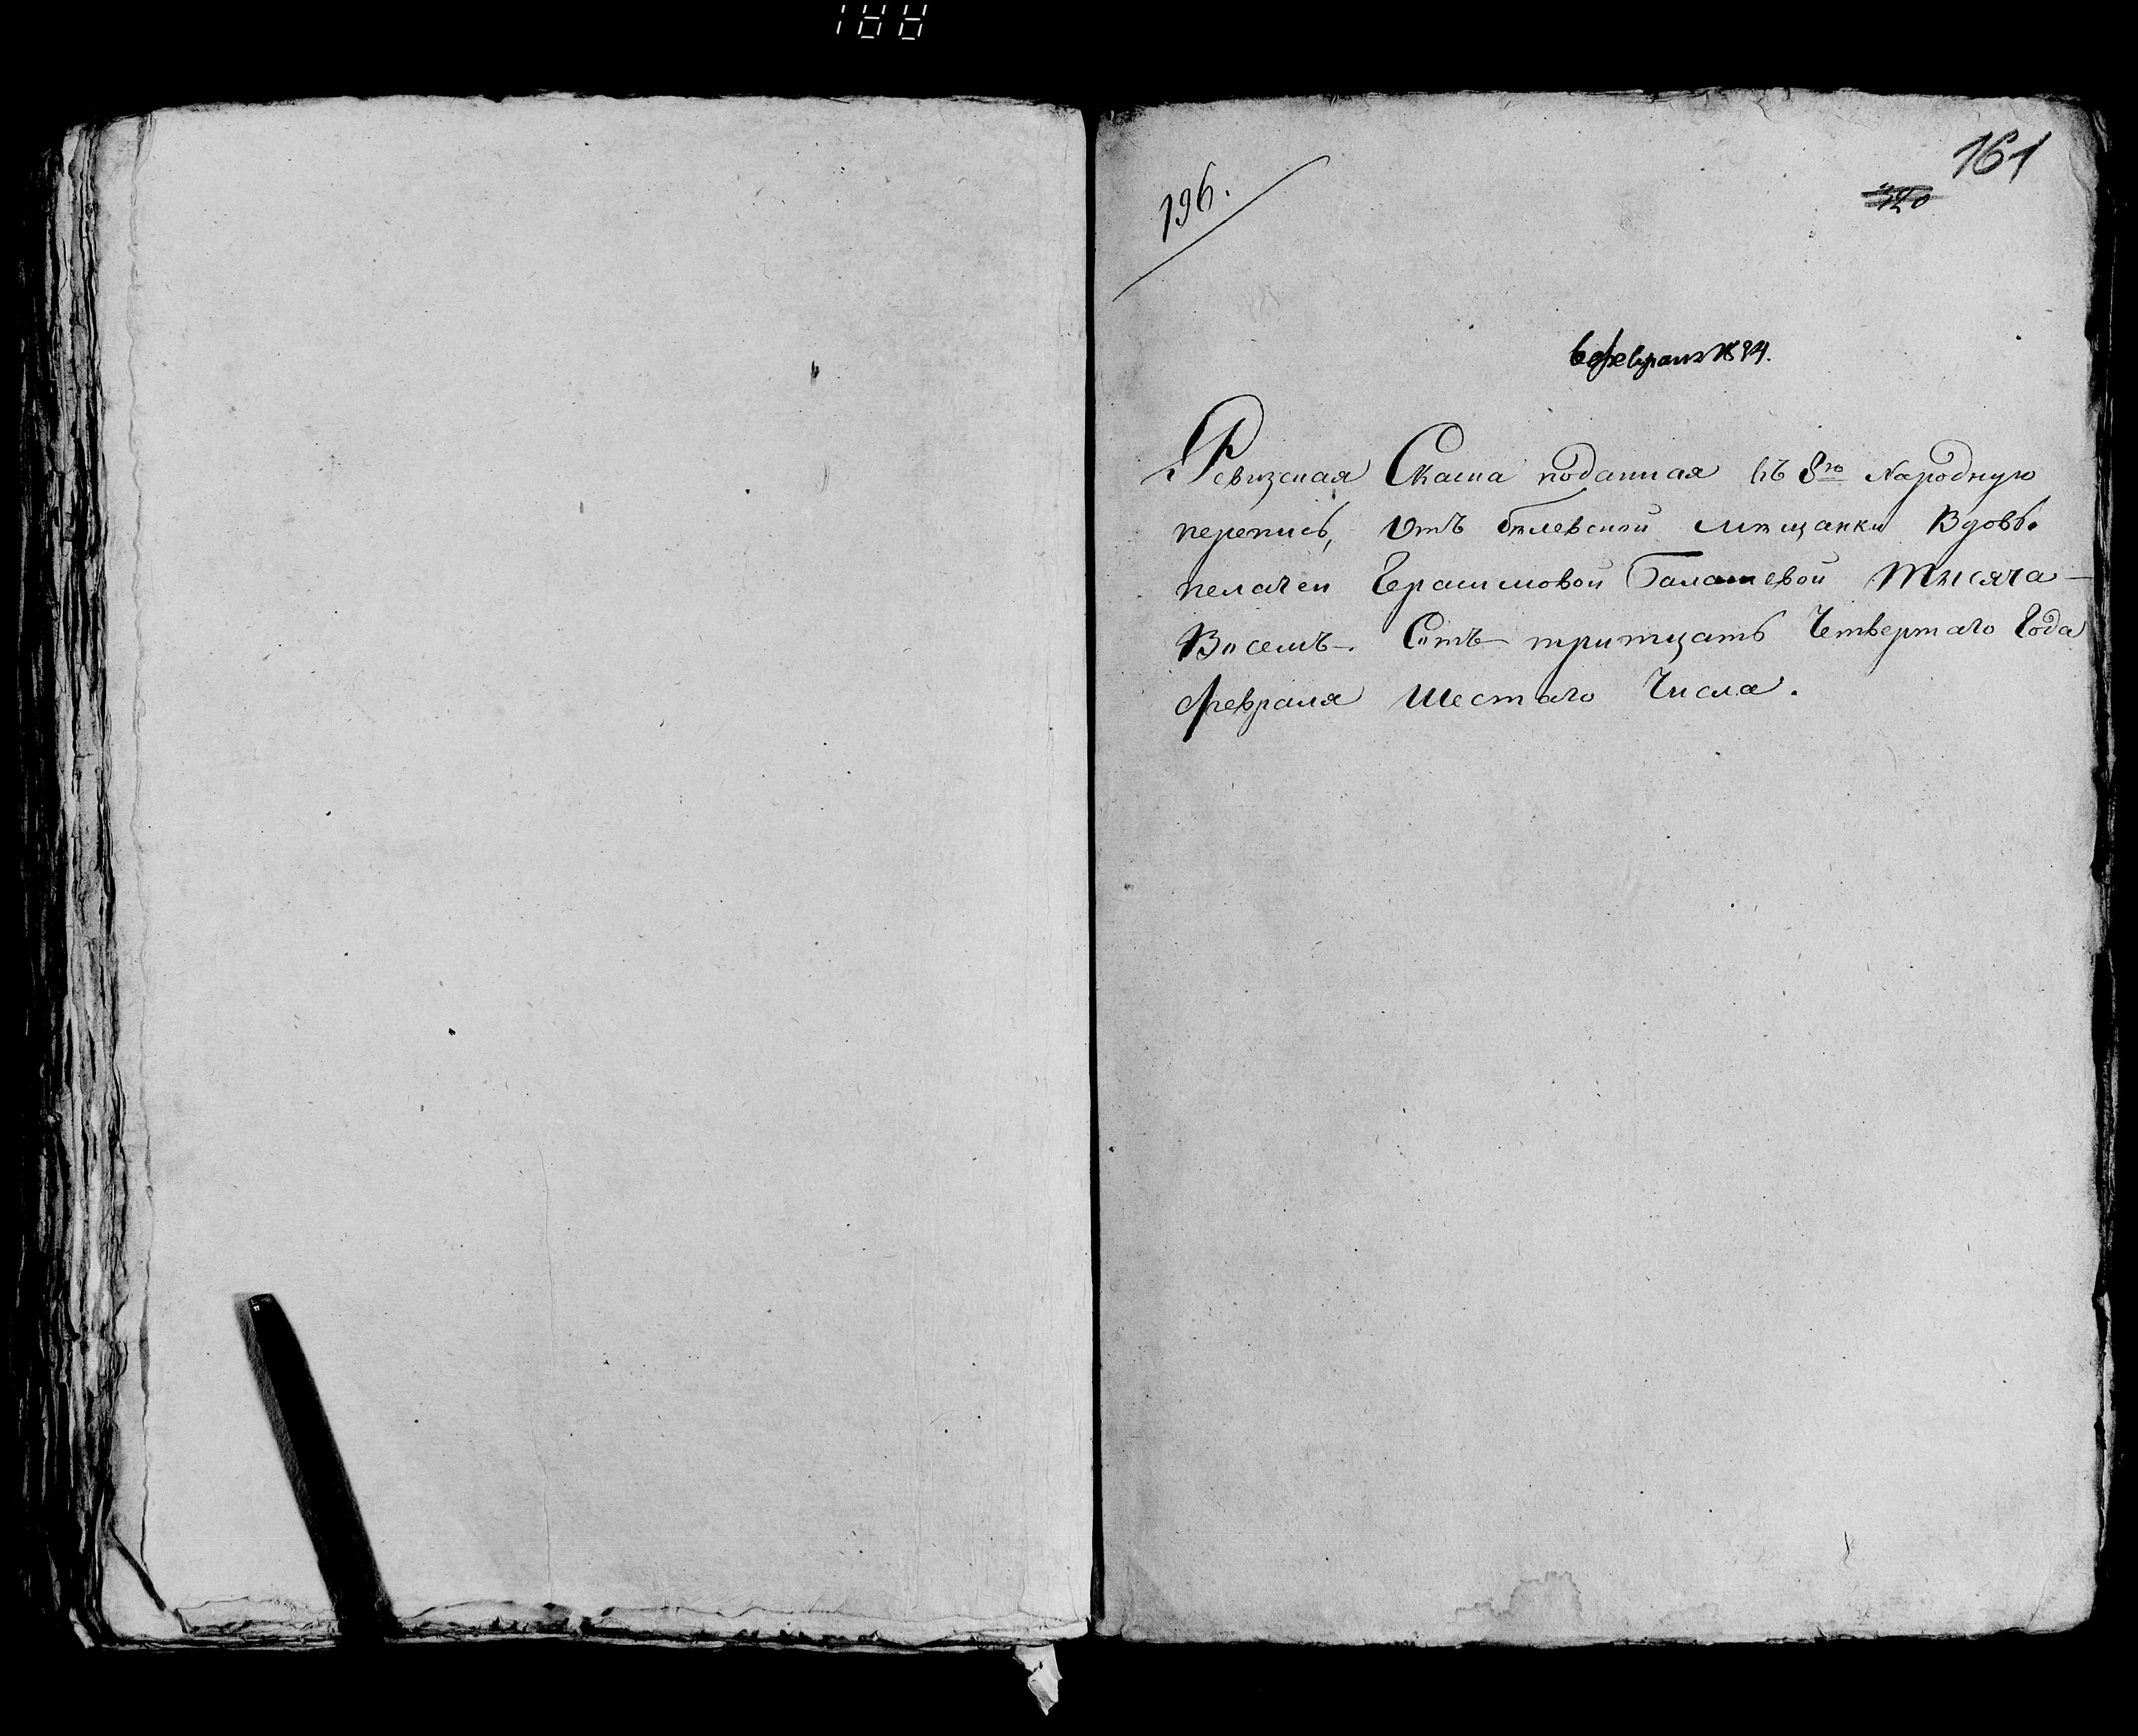 188
161
196.
6 февраля 1834.
Ревизская Скаска поданная въ 8ю Народную
перепись, Отъ бѣлевской мѣщанки Вдовы
пелагеи Герасимовой Балашевой Тысяча
Восемь Сотъ тритцать Четвертаго Года
февраля Шестаго Числа.